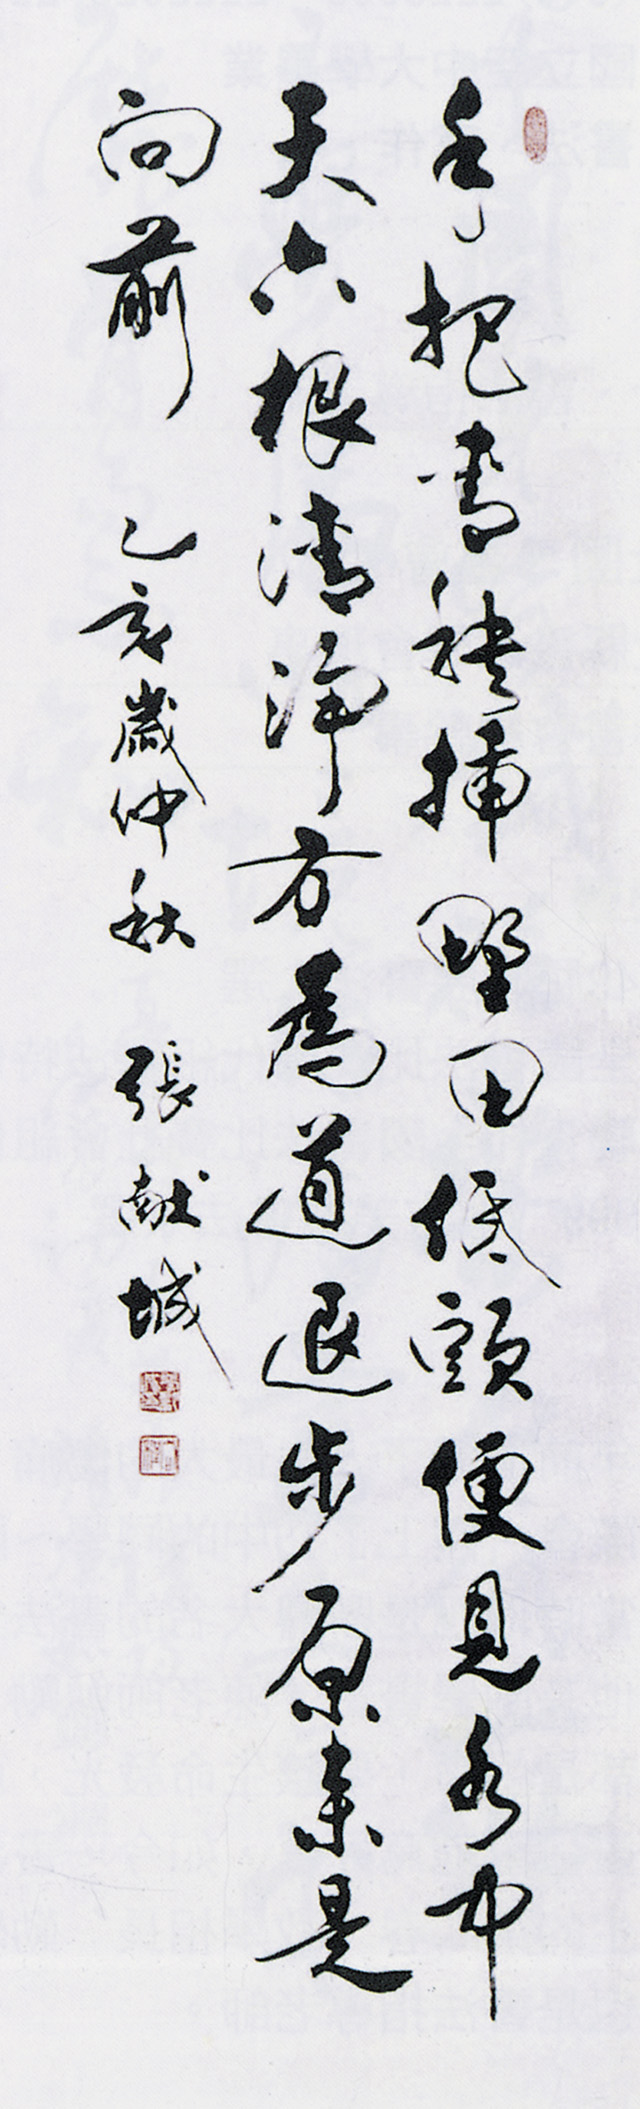 手把青秧插野田低頭便見水中
天六根清淨方為道退步原來是
向前
乙亥歲仲秋 張獻城